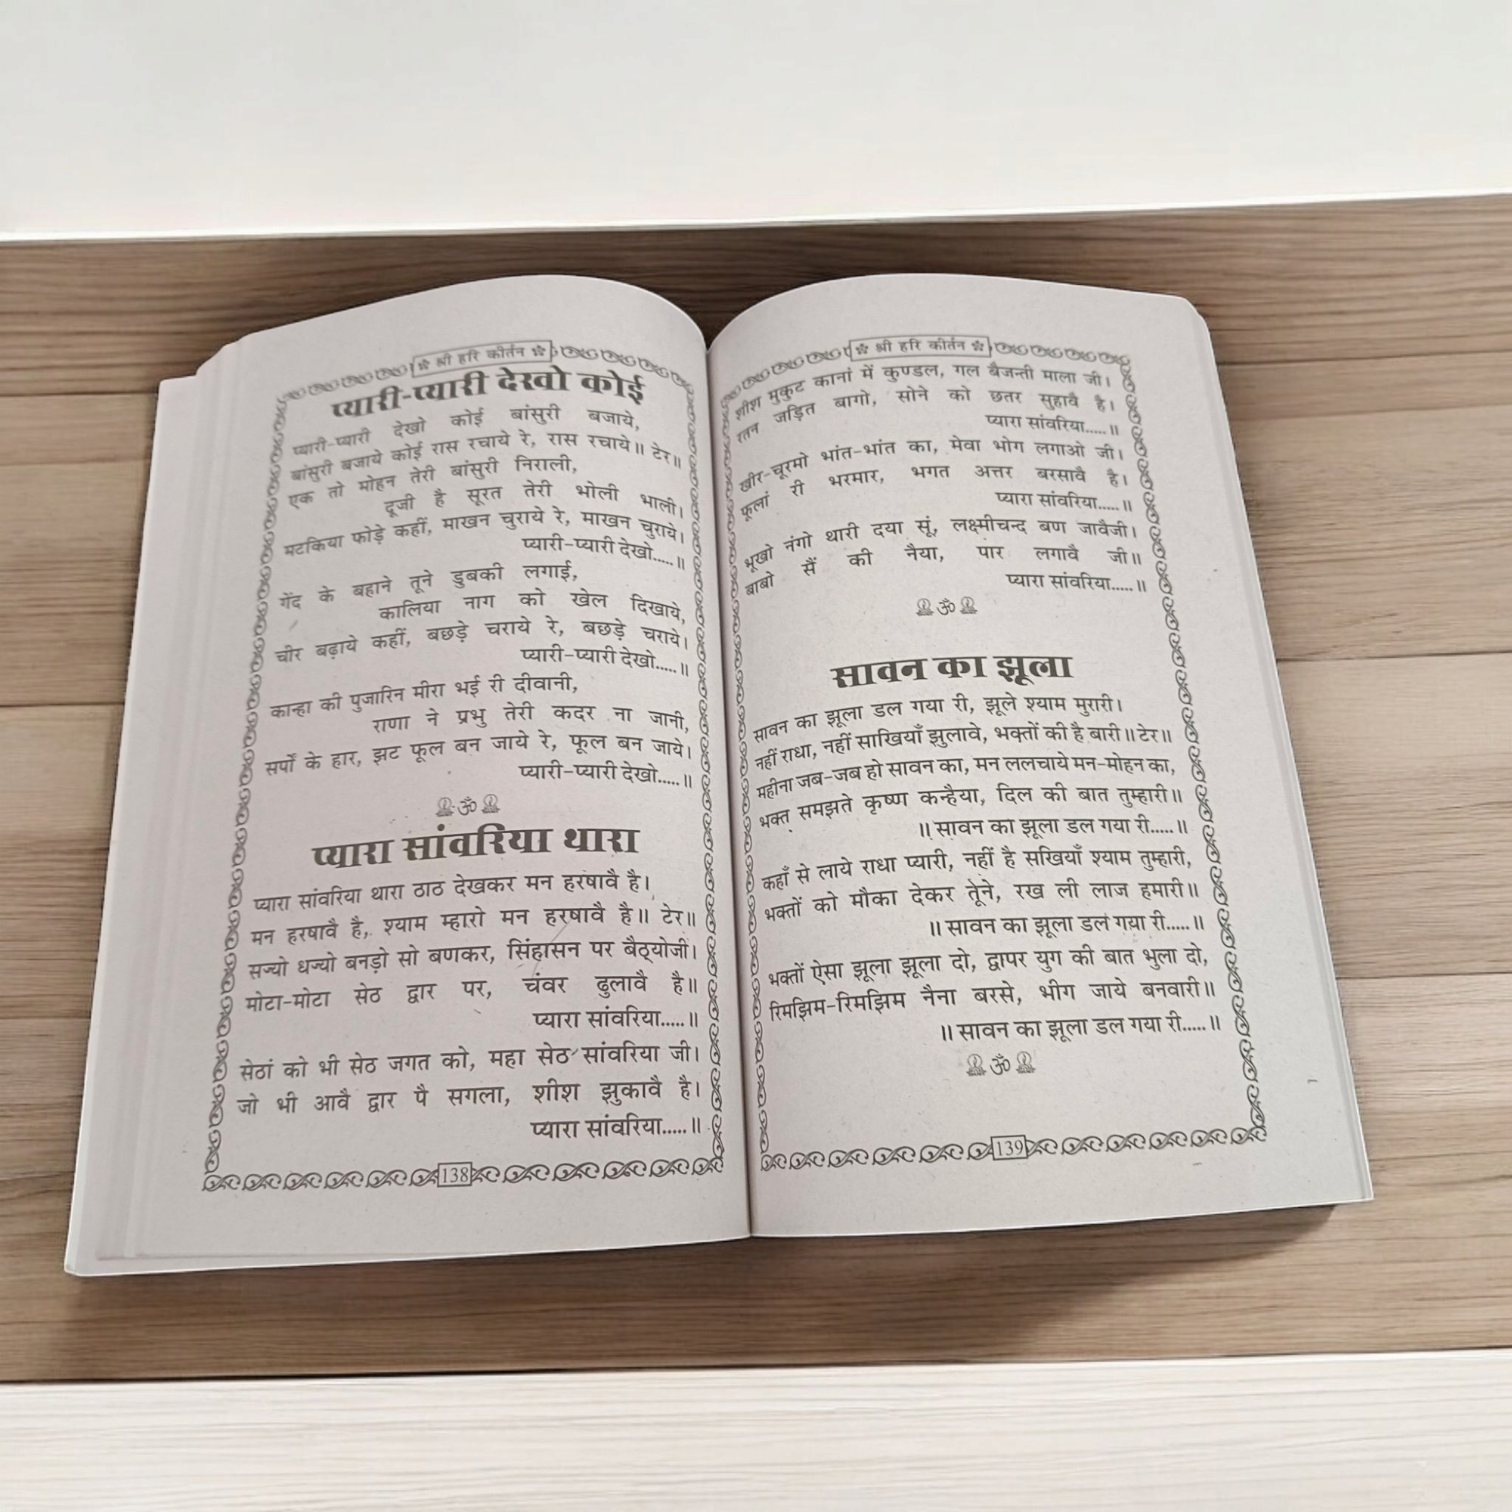 ✿ श्री हरि कीर्तन ✿
प्यारी-प्यारी देखो कोई
प्यारी-प्यारी देखो कोई बांसुरी बजाये,
बांसुरी बजाये कोई रास रचाये रे, रास रचाये॥ टेर॥
एक तो मोहन तेरी बांसुरी निराली,
दूजी है सूरत तेरी भोली भाली।
मटकिया फोड़े कहीं, माखन चुराये रे, माखन चुराये।
प्यारी-प्यारी देखो.....॥
गेंद के बहाने तूने डुबकी लगाई,
कालिया नाग को खेल दिखाये,
चीर बढ़ाये कहीं, बछड़े चराये रे, बछड़े चराये।
प्यारी-प्यारी देखो.....॥
कान्हा की पुजारिन मीरा भई री दीवानी,
राणा ने प्रभु तेरी कदर ना जानी,
सर्पों के हार, झट फूल बन जाये रे, फूल बन जाये।
प्यारी-प्यारी देखो.....॥
ॐ
प्यारा सांवरिया थारा
प्यारा सांवरिया थारा ठाठ देखकर मन हरषावै है।
मन हरषावै है, श्याम म्हारो मन हरषावै है॥ टेर॥
सज्यो धज्यो बनड़ो सो बणकर, सिंहासन पर बैठ्योजी।
मोटा-मोटा सेठ द्वार पर, चंवर ढुलावै है॥
प्यारा सांवरिया.....॥
सेठां को भी सेठ जगत को, महा सेठ सांवरिया जी।
जो भी आवै द्वार पै सगला, शीश झुकावै है।
प्यारा सांवरिया.....॥
138
✿ श्री हरि कीर्तन ✿
शीश मुकुट कानां में कुण्डल, गल बैजन्ती माला जी।
रतन जड़ित बागो, सोने को छतर सुहावै है।
प्यारा सांवरिया.....॥
खीर-चूरमो भांत-भांत का, मेवा भोग लगाओ जी।
फूलां री भरमार, भगत अत्तर बरसावै है।
प्यारा सांवरिया.....॥
भूखो नंगो थारी दया सूं, लक्ष्मीचन्द बण जावैजी।
बाबो सैं की नैया, पार लगावै जी॥
प्यारा सांवरिया.....॥
ॐ
सावन का झूला
सावन का झूला डल गया री, झूले श्याम मुरारी।
नहीं राधा, नहीं साखियाँ झुलावे, भक्तों की है बारी॥ टेर॥
महीना जब-जब हो सावन का, मन ललचाये मन-मोहन का,
भक्त समझते कृष्ण कन्हैया, दिल की बात तुम्हारी॥
॥ सावन का झूला डल गया री.....॥
कहाँ से लाये राधा प्यारी, नहीं है सखियाँ श्याम तुम्हारी,
भक्तों को मौका देकर तूने, रख ली लाज हमारी॥
॥ सावन का झूला डल गया री.....॥
भक्तों ऐसा झूला झूला दो, द्वापर युग की बात भुला दो,
रिमझिम-रिमझिम नैना बरसे, भीग जाये बनवारी॥
॥ सावन का झूला डल गया री.....॥
ॐ
139